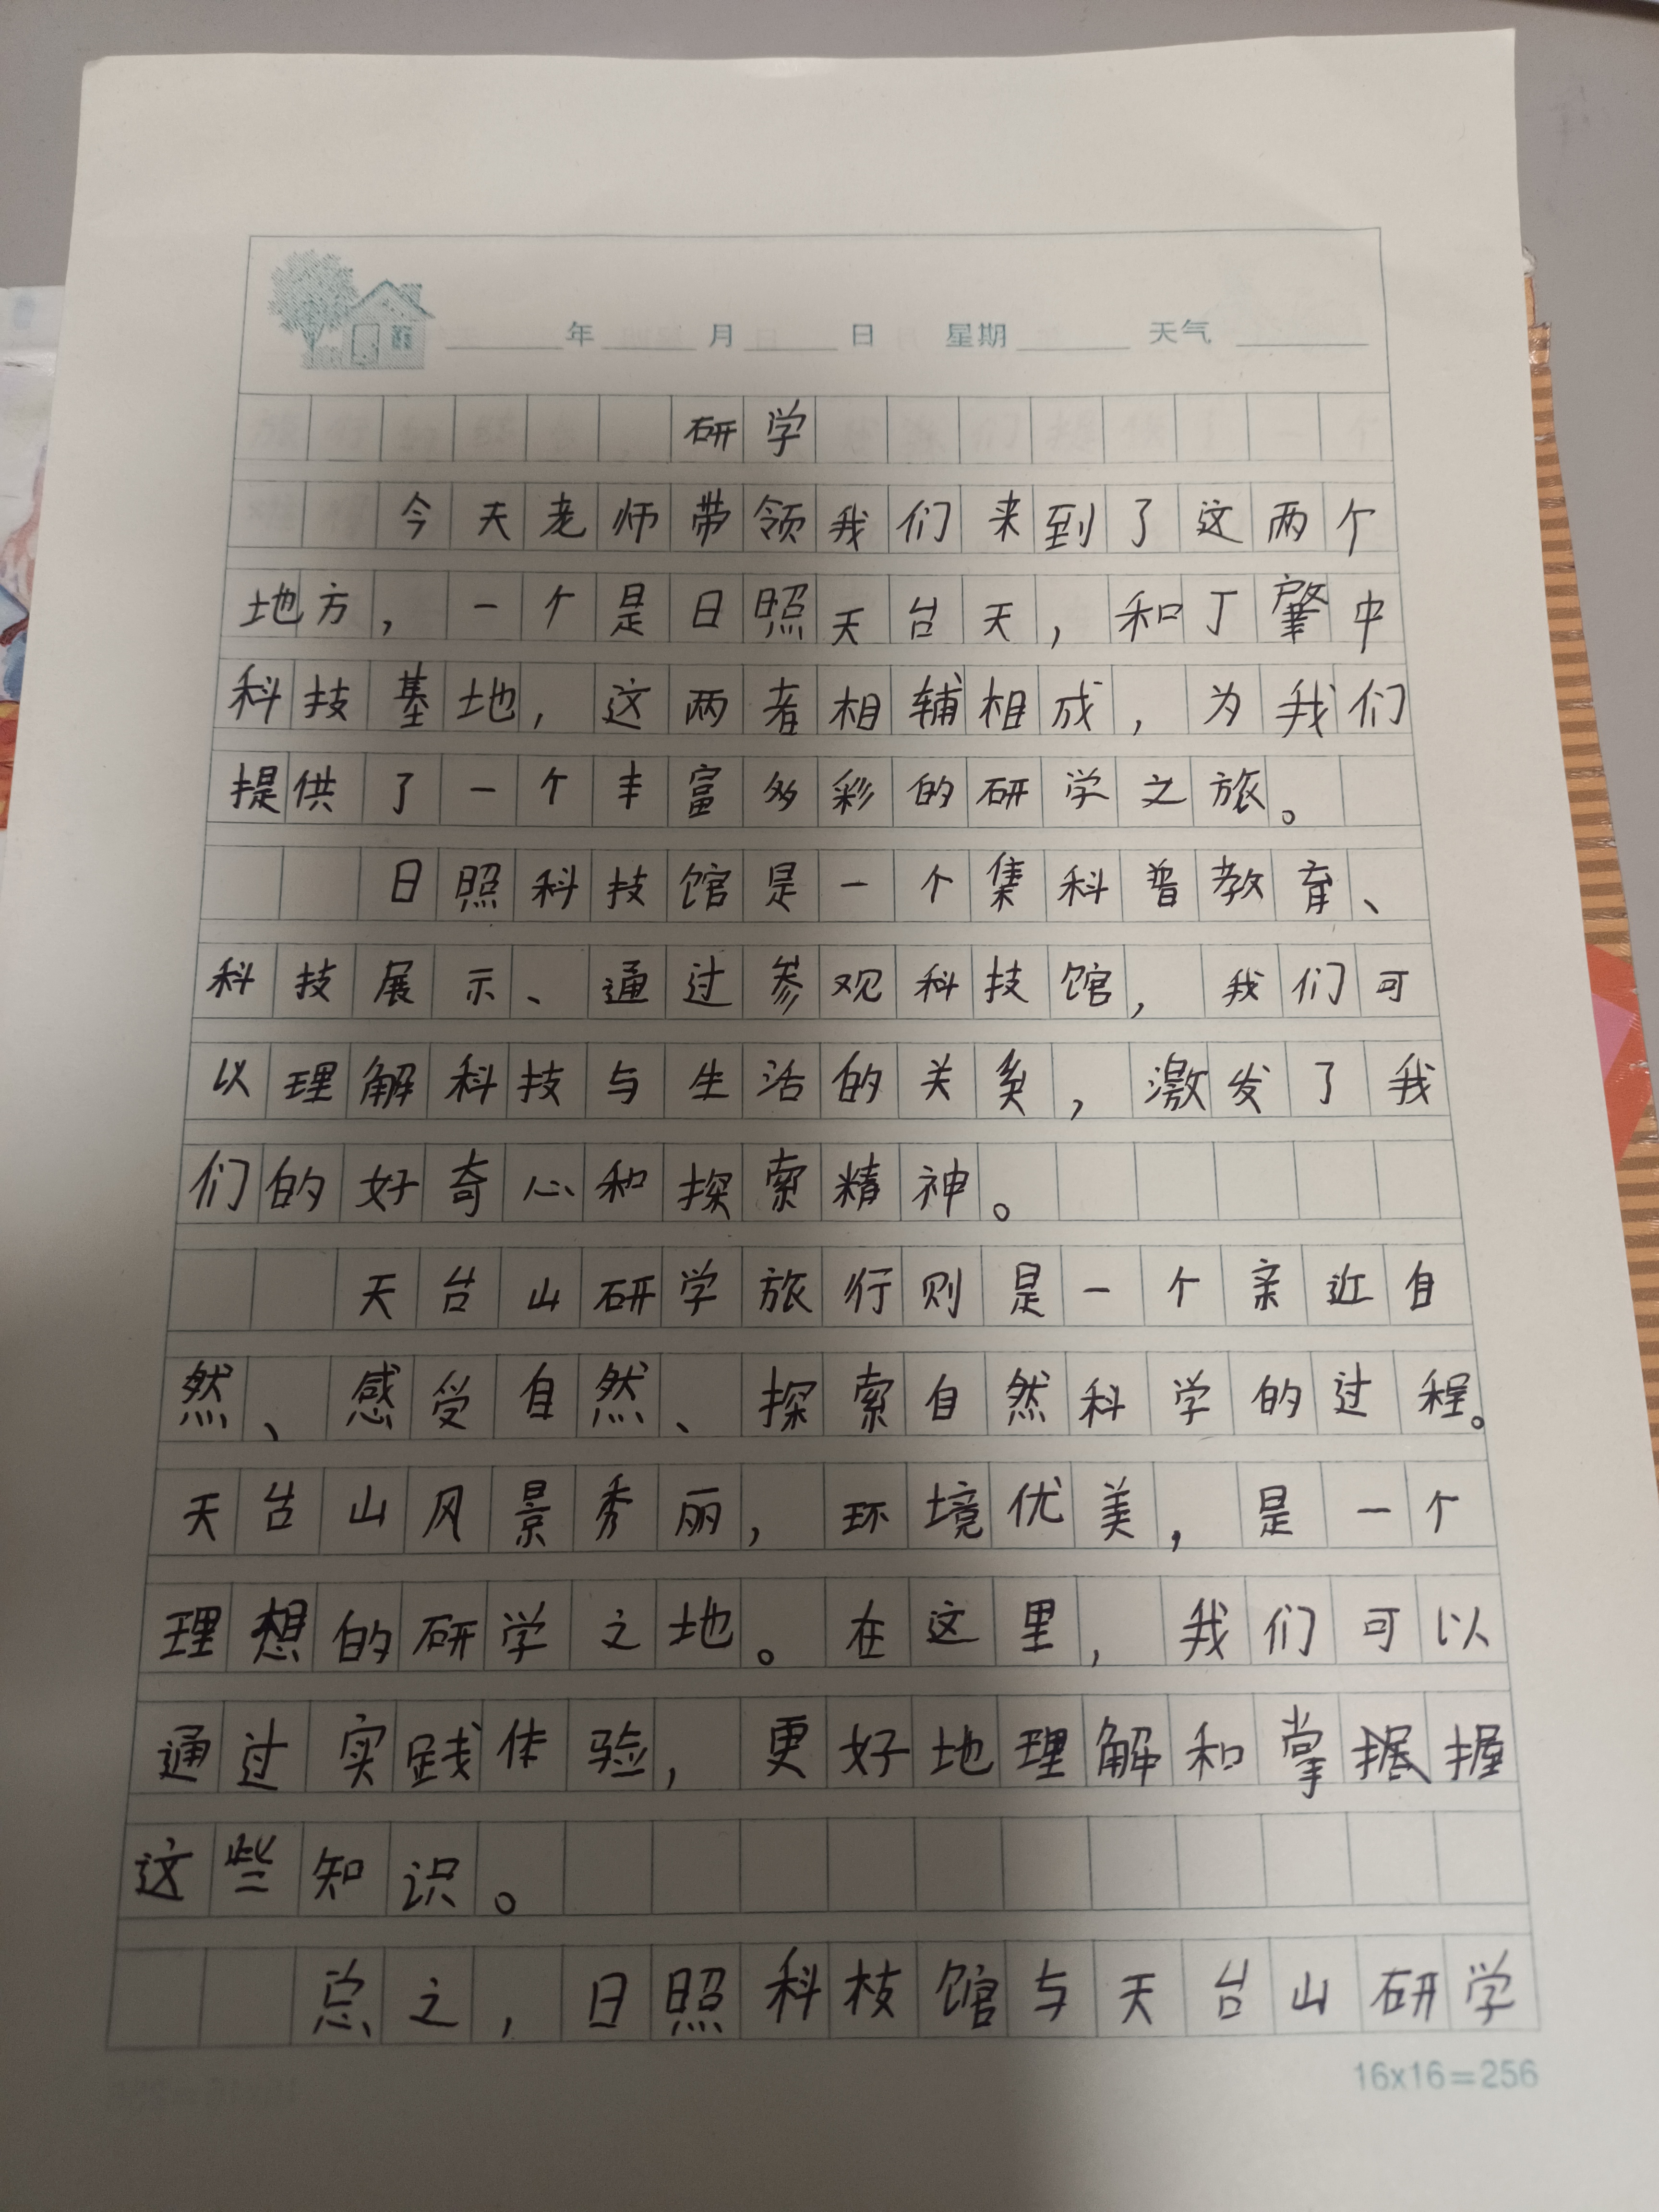 年 月 日 星期 天气
研学
今天老师带领我们来到了这两个
地方，一个是日照天台天，和丁肇中
科技基地，这两者相辅相成，为我们
提供了一个丰富多彩的研学之旅。
日照科技馆是一个集科普教育、
科技展示、通过参观科技馆，我们可
以理解科技与生活的关系，激发了我
们的好奇心和探索精神。
天台山研学旅行则是一个亲近自
然、感受自然、探索自然科学的过程。
天台山风景秀丽，环境优美，是一个
理想的研学之地。在这里，我们可以
通过实践体验，更好地理解和掌握
这些知识。
总之，日照科技馆与天台山研学
16x16=256